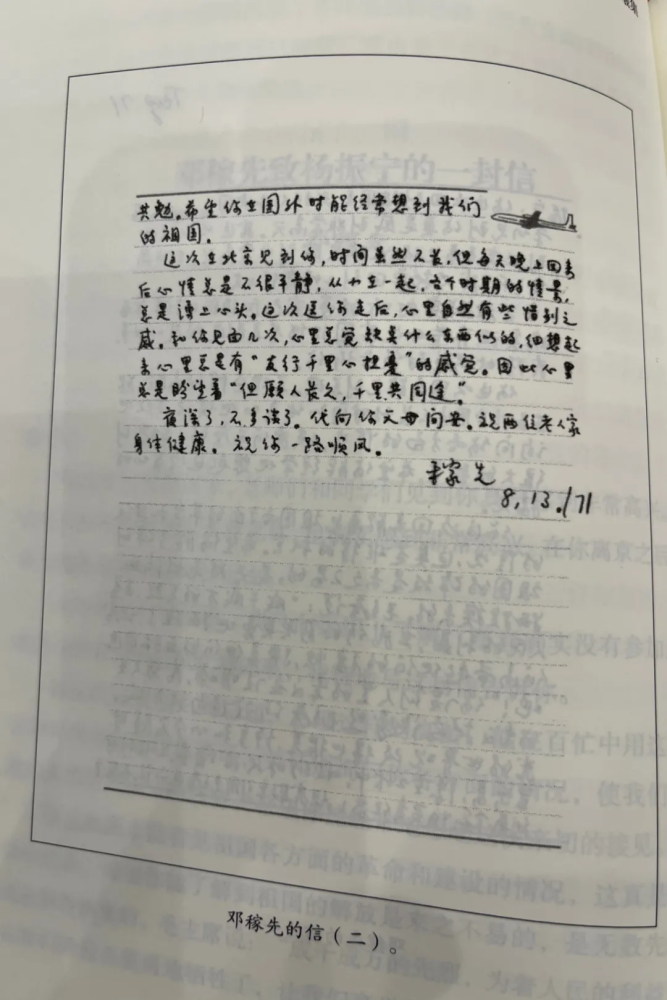 共勉。希望你在国外时能经常想到我们
的祖国。
这次在北京见到你,时间虽然不长,但每天晚上回来
后心情总是不很平静,从小在一起,各个时期的情景,
总是涌上心头。这次送你走后,心里自然有些惜别之
感。和你见面几次,心里总觉缺点什么东西似的,细想起
来心里总是有“友行千里心担忧”的感觉。因此心里
总是盼望着“但愿人长久,千里共同途”。
夜深了,不多谈了。代向你父母问安。祝两位老人家
身体健康。祝你一路顺风。
稼先
8,13./71
邓稼先的信(二)。